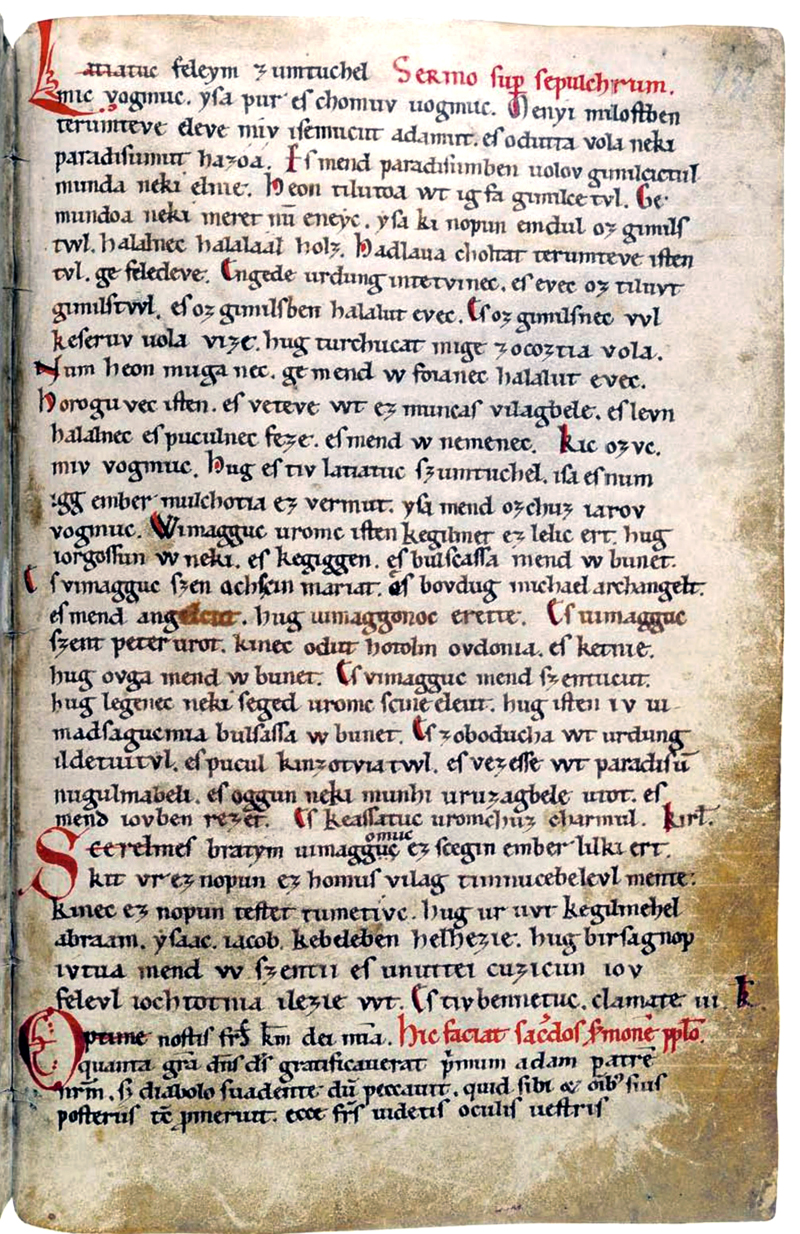 Latiatuc feleym zumtuchel Sermo sup sepulchrum.
mic vogmuc. ysa pur es chomuv uogmuc. Menyi milostben
terumteve eleve miv isemucut adamut. es odutta vola neki
paradisumut hazoá. Es mend paradisumben uolov gimilcictul
munda neki elnie. Heon tilutoa wt ig fa gimilce tvl. Ge
mundoa neki meret nū eneyc. ysa ki nopun emdul oz gimils
twl. halalnec halalaal holz. Hadlaua choltat terumteve isten
tvl. ge feledeve. Engede urdung intetvinec. es evec oz tiluvt
gimilstwl. es oz gimilsben halalut evec. Es oz gimilsnec vvl
keseruv uola vize. hug turchucat mige zocoztia vola.
Num heon muga nec. ge mend w foianec halalut evec.
Horogu vec isten. es veteve wt ez muncas vilagbele. es levn
halalnec es puculnec feze. es mend w nemenec. Kic ozvc.
miv vogmuc. Hug es tiv latiatuc szumtuchel. isa es num
igg ember mulchotia ez vermut. ysa mend ozchuz iarov
vogmuc. Wimagguc uromc isten kegilmet ez lelic ert. hug
iorgossun w neki. es kegiggen. es bulscassa mend w bunet.
Es vimagguc szen achscin mariat. es bovdug michael archangelt.
es mend angelcut. hug uimaggonoc erette. Es uimagguc
szent peter urot. kinec odut hotolm ovdonia. es ketnie.
hug ovga mend w bunet. Es vimagguc mend szentucut.
hug legenec neki seged uromc scine eleut. hug isten iv ui
madsaguc mia bulsassa w bunet. Es zoboducha wt urdung
ildetuitvl. es pucul kinzotviatwl. es vezesse wt paradisū
nugulmabeli. es oggun neki munhi uruzagbele utot. es
mend iovben rezet. Es keassatuc uromchuz charmul. kirł.
Scerelmes bratym uimagguc omuc ez scegin ember lilki ert.
kit vr ez nopun ez homus vilag timnucebelevl mente.
kinec ez nopun testet tumetivc. hug ur uvt kegilmehel
abraam. ysaac. iacob. kebeleben helhezie. hug birsagnop
ivtua mend w szentii es unuttei cuzicun iov
felevl iochtotnia ilezie wt. Es tiv bennetuc. clamate iii. k.
Optime nostis frs̄ km̄ dei mīa. hic faciat sac̄dos s̄monē pp̄lo.
quanta grā dn̄s ds̄ gratificauerat p̄mum adam patrē
nrm̄. sz diabolo suadente dū peccauit. quid sibi & oīb' suis
posteris tē p̄meruit. ecce frs̄ uidetis oculis uestris